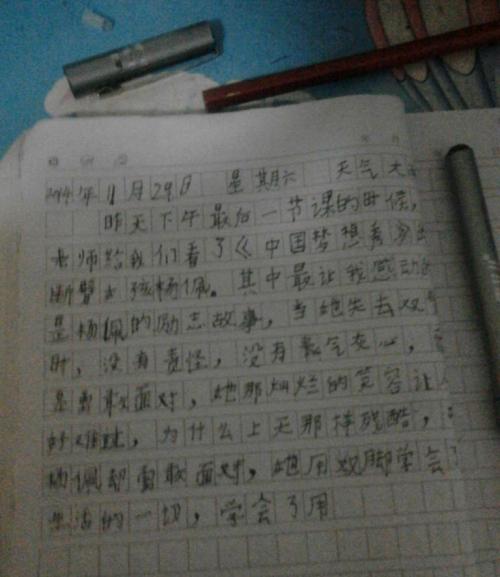 2014年11月29日 星期六 天气
昨天下午最后一节课的时候,
老师给我们看了《中国梦想秀
断臂女孩杨佩。其中最让我感动的
是杨佩的励志故事,当她失去双
时,没有责怪,没有气灰心,
是勇敢面对,她那灿烂的笑容让
好难过,为什么上天那样残酷,
杨佩却勇敢面对,她用双脚学会
生活的一切,学会了用